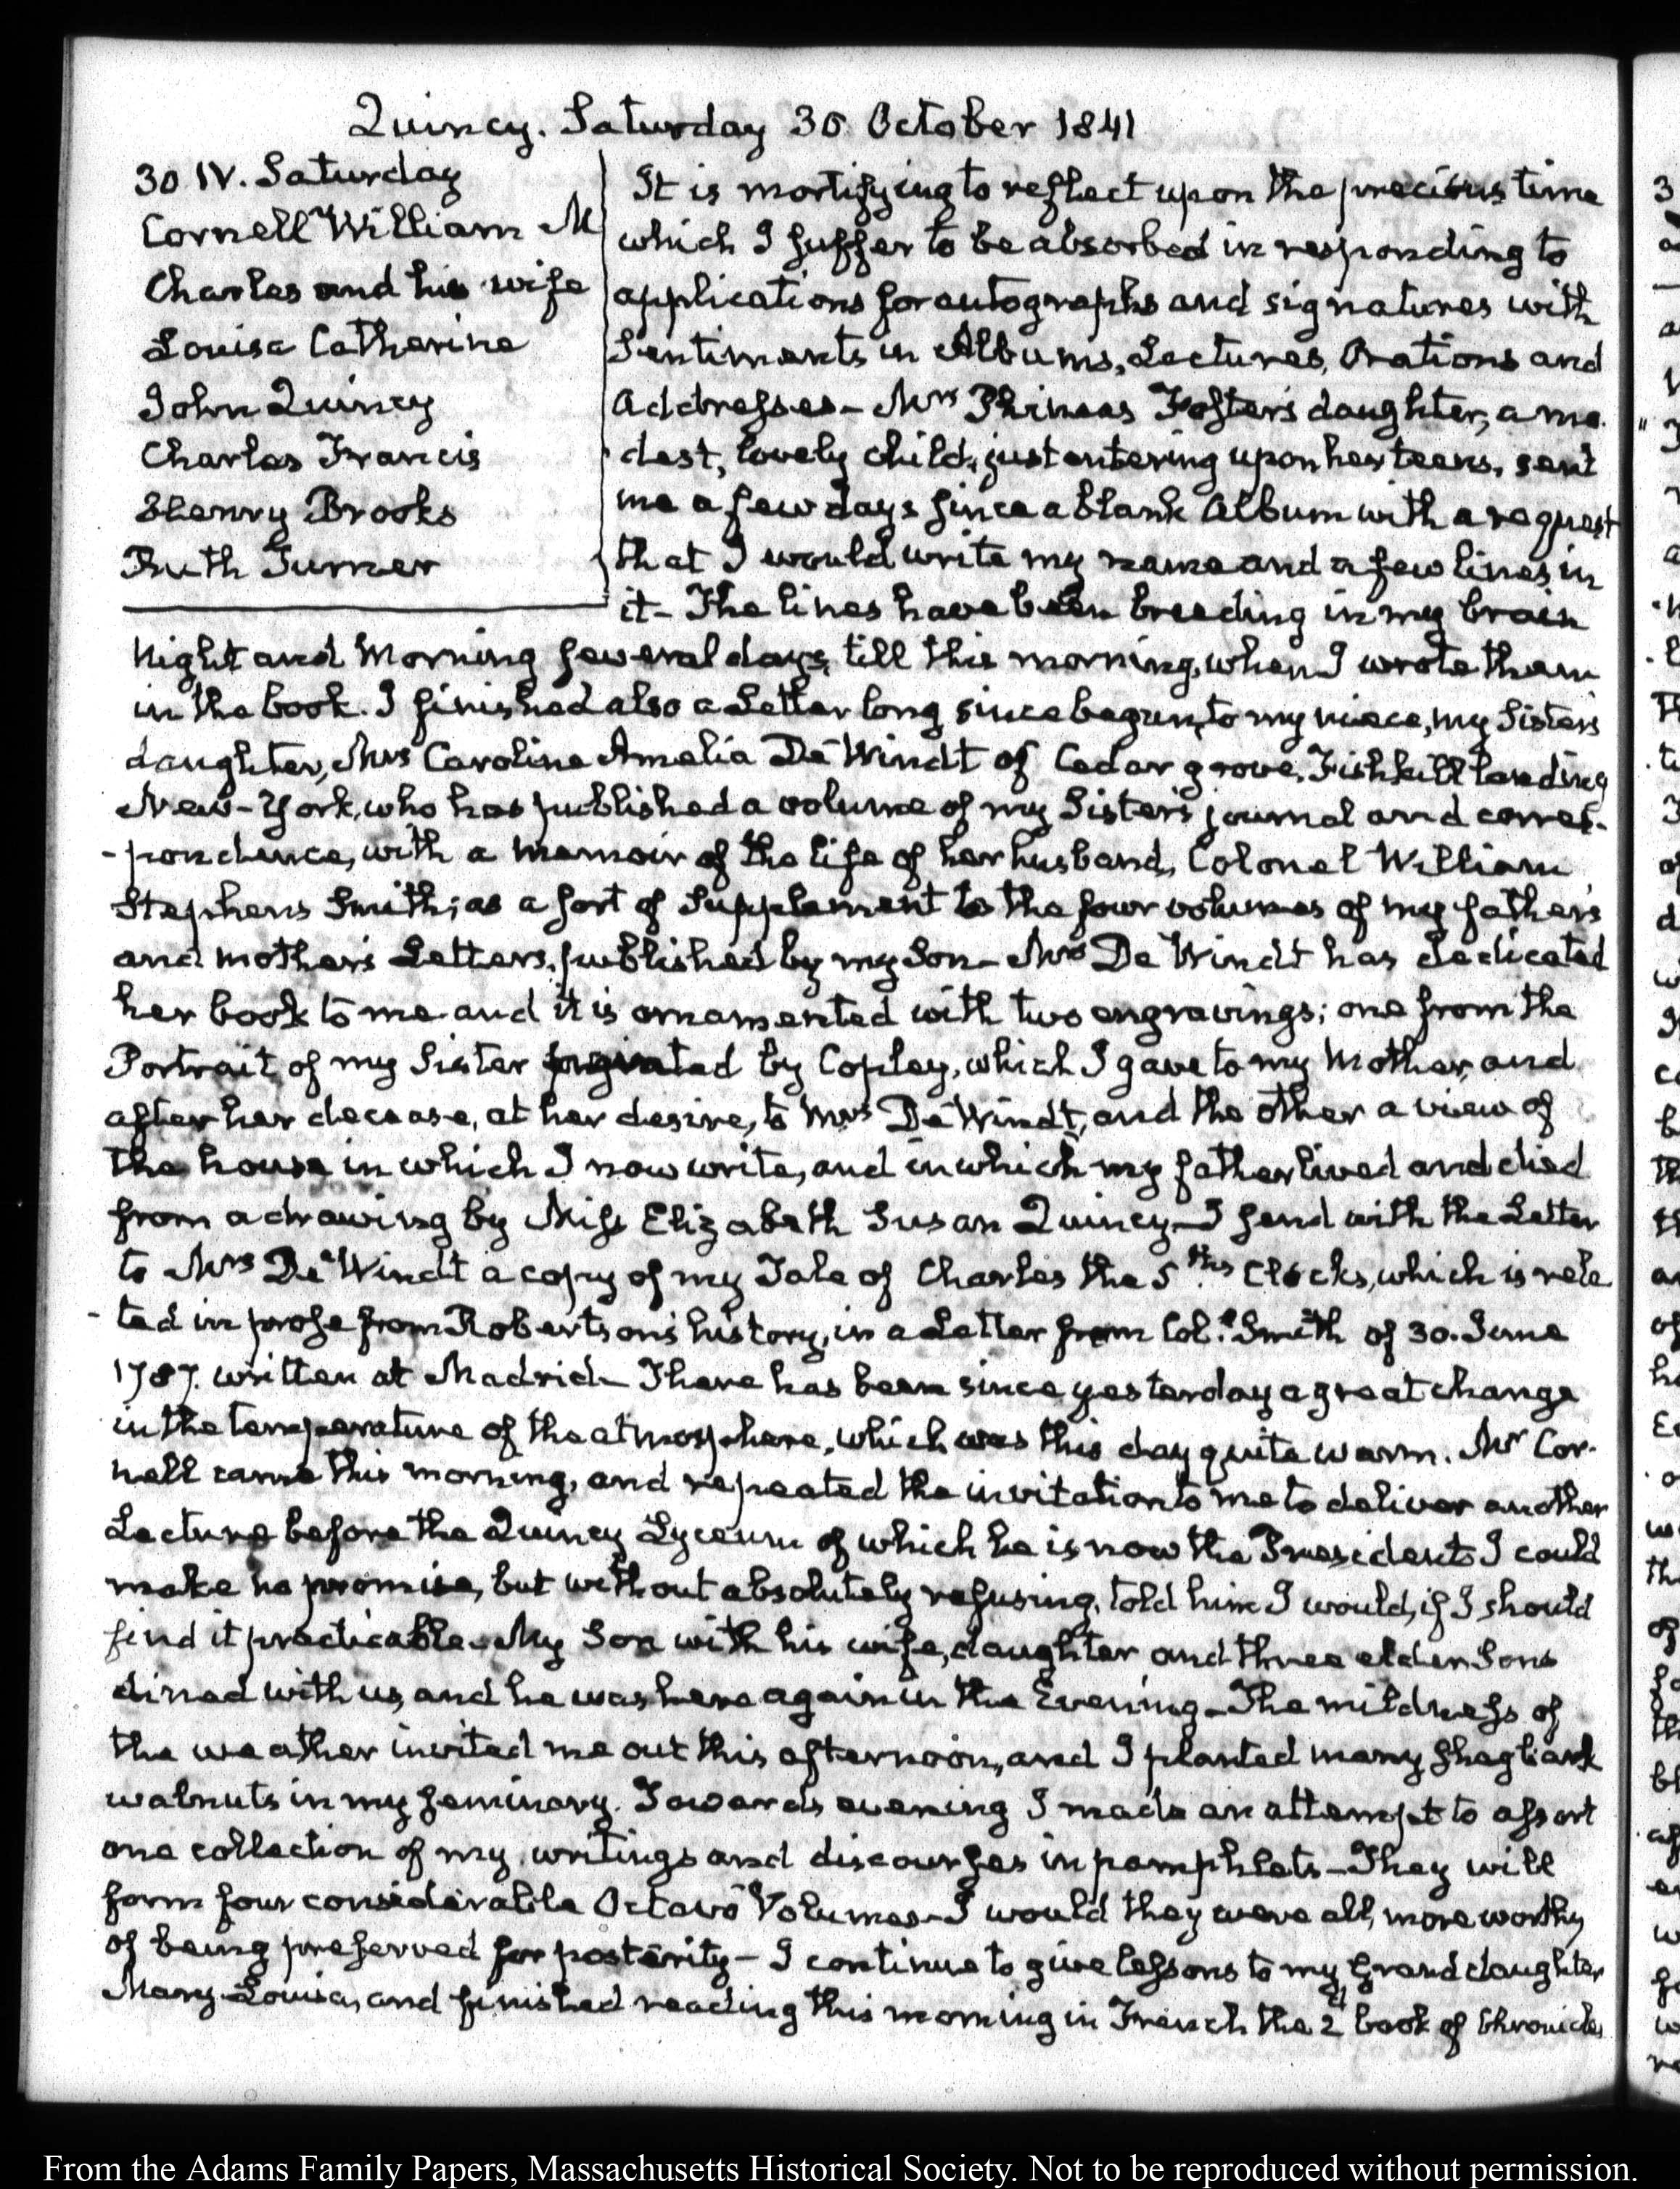 Quincy. Saturday 30 October 1841
30 IV. Saturday
Cornell William M
Charles and his wife
Louisa Catherine
John Quincy
Charles Francis
Henry Brooks
Ruth Turner
It is mortifying to reflect upon the precious time
which I suffer to be absorbed in responding to
applications for autographs and signatures with
Sentiments in Albums, Lectures, Orations and
Addresses – Mrs Phineas Foster's daughter, a mo-
dest, lovely child, just entering upon her teens, sent
me a few days since a blank Album with a request
that I would write my name and a few lines in
it – The lines have been breeding in my brain
Night and Morning several days, till this morning, when I wrote them
in the book. I finished also a Letter long since begun, to my niece, my Sister's
daughter, Mrs Caroline Amelia De Windt of Cedar grove, Fishkill landing
New-York, who has published a volume of my Sister's journal and corres-
-pondence, with a memoir of the life of her husband, Colonel William
Stephens Smith; as a sort of Supplement to the four volumes of my father's
and mother's Letters, published by my Son – Mrs De Windt has dedicated
her book to me and it is ornamented with two engravings; one from the
Portrait of my Sister by Copley, which I gave to my Mother, and
after her decease, at her desire, to Mrs De Windt, and the other a view of
the house in which I now write, and in which my father lived and died
from a drawing by Miss Elizabeth Susan Quincy – I send with the Letter
to Mrs De Windt a copy of my Tale of Charles the 5th's Clocks, which is rela
-ted in prose from Robertson's history, in a Letter from Col. Smith of 30. June
1787. written at Madrid – There has been since yesterday a great change
in the temperature of the atmosphere, which was this day quite warm. Mr Cor-
nell came this morning, and repeated the invitation to me to deliver another
Lecture before the Quincy Lyceum of which he is now the President – I could
make no promise, but without absolutely refusing, told him I would, if I should
find it practicable – My Son with his wife, daughter and three elder Sons
dined with us, and he was here again in the Evening – The mildness of
the weather invited me out this afternoon, and I planted many shagbark
walnuts in my seminary. Towards evening I made an attempt to assort
one collection of my writings and discourses in pamphlets – They will
form four considerable Octavo Volumes – I would they were all, more worthy
of being preserved for posterity – I continue to give lessons to my Grand daughter
Mary-Louisa, and finished reading this morning in French the 2d book of Chronicles
From the Adams Family Papers, Massachusetts Historical Society. Not to be reproduced without permission.